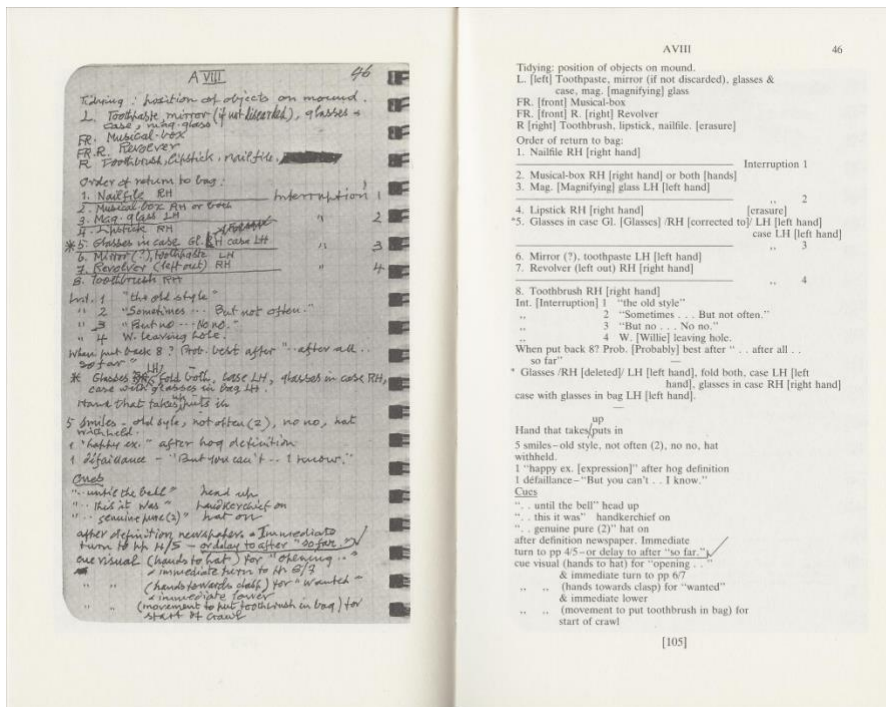 A VIII
46
Tidying : position of objects on mound.
L. Toothpaste, mirror (if not discarded), glasses +
case, mag. glass
FR. Musical-box
FR.R. Revolver
R Toothbrush, lipstick, nailfile.
Order of return to bag:
1. Nailfile RH Interruption 1
2. Musical-box RH or both
3. Mag. glass LH " 2
4. Lipstick RH
*5. Glasses in case Gl. LH case LH " 3
6. Mirror (?), toothpaste LH
7. Revolver (left out) RH " 4
8. Toothbrush RH
Int. 1 "the old style"
" 2 "Sometimes ... But not often."
" 3 "But no ... No no."
" 4 W. leaving hole.
When put back 8? Prob. best after "..after all..
so far"
* Glasses RH LH, fold both, case LH, glasses in case RH,
case with glasses in bag LH.
Hand that takes up puts in
5 smiles - old style, not often (2), no no, hat
withheld.
1 "happy ex." after hog definition
1 défaillance - "But you can't .. I know."
Cues
".. until the bell" head up
".. this it was" handkerchief on
".. genuine pure (2)" hat on
after definition newspaper. Immediate
turn to pp 4/5 - or delay to after "so far."
cue visual (hands to hat) for "opening .."
& immediate turn to pp 6/7
" " (hands towards clasp) for "wanted"
& immediate lower
" " (movement to put toothbrush in bag) for
start of crawl
A VIII
46
Tidying: position of objects on mound.
L. [left] Toothpaste, mirror (if not discarded), glasses &
case, mag. [magnifying] glass
FR. [front] Musical-box
FR. [front] R. [right] Revolver
R [right] Toothbrush, lipstick, nailfile. [erasure]
Order of return to bag:
1. Nailfile RH [right hand]
Interruption 1
2. Musical-box RH [right hand] or both [hands]
3. Mag. [Magnifying] glass LH [left hand]
,, 2
4. Lipstick RH [right hand] [erasure]
*5. Glasses in case Gl. [Glasses] /RH [corrected to]/ LH [left hand]
case LH [left hand]
,, 3
6. Mirror (?), toothpaste LH [left hand]
7. Revolver (left out) RH [right hand]
,, 4
8. Toothbrush RH [right hand]
Int. [Interruption] 1 "the old style"
,, 2 "Sometimes . . . But not often."
,, 3 "But no . . . No no."
,, 4 W. [Willie] leaving hole.
When put back 8? Prob. [Probably] best after " . . after all . .
so far"
* Glasses /RH [deleted]/ LH [left hand], fold both, case LH [left
hand], glasses in case RH [right hand]
case with glasses in bag LH [left hand].
up
Hand that takes/puts in
5 smiles–old style, not often (2), no no, hat
withheld.
1 "happy ex. [expression]" after hog definition
1 défaillance–"But you can't . . I know."
Cues
". . until the bell" head up
". . this it was" handkerchief on
". . genuine pure (2)" hat on
after definition newspaper. Immediate
turn to pp 4/5–or delay to after "so far."
cue visual (hands to hat) for "opening . . "
& immediate turn to pp 6/7
,, ,, (hands towards clasp) for "wanted"
& immediate lower
,, ,, (movement to put toothbrush in bag) for
start of crawl
[105]